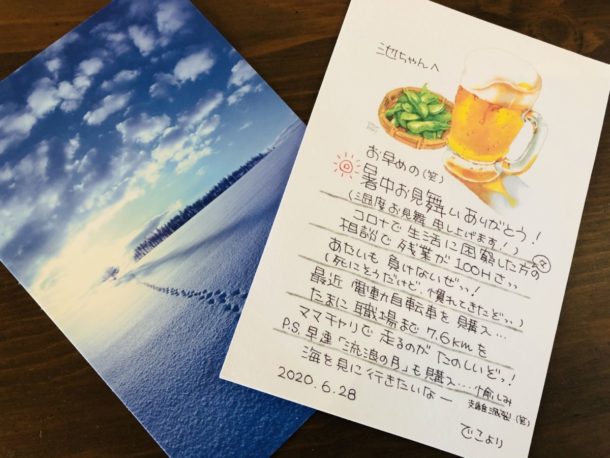 池ちゃんへ
お早めの(笑)
暑中お見舞いありがとう!
(温度お見舞 申し上げます!)
コロナで生活に困窮した方の
相談で残業が100Hさっ
あたいも負けないぜっ!
(死にそうだけど、慣れてきたどっ)
最近 電動自転車を購入…
たまに職場まで7.6kmを
ママチャリで走るのがたのしいどっ!
P.S.早速「流浪の月」も購入…愉しみ
海を見に行きたいなー
支離滅裂(笑)
2020.6.28
でこより